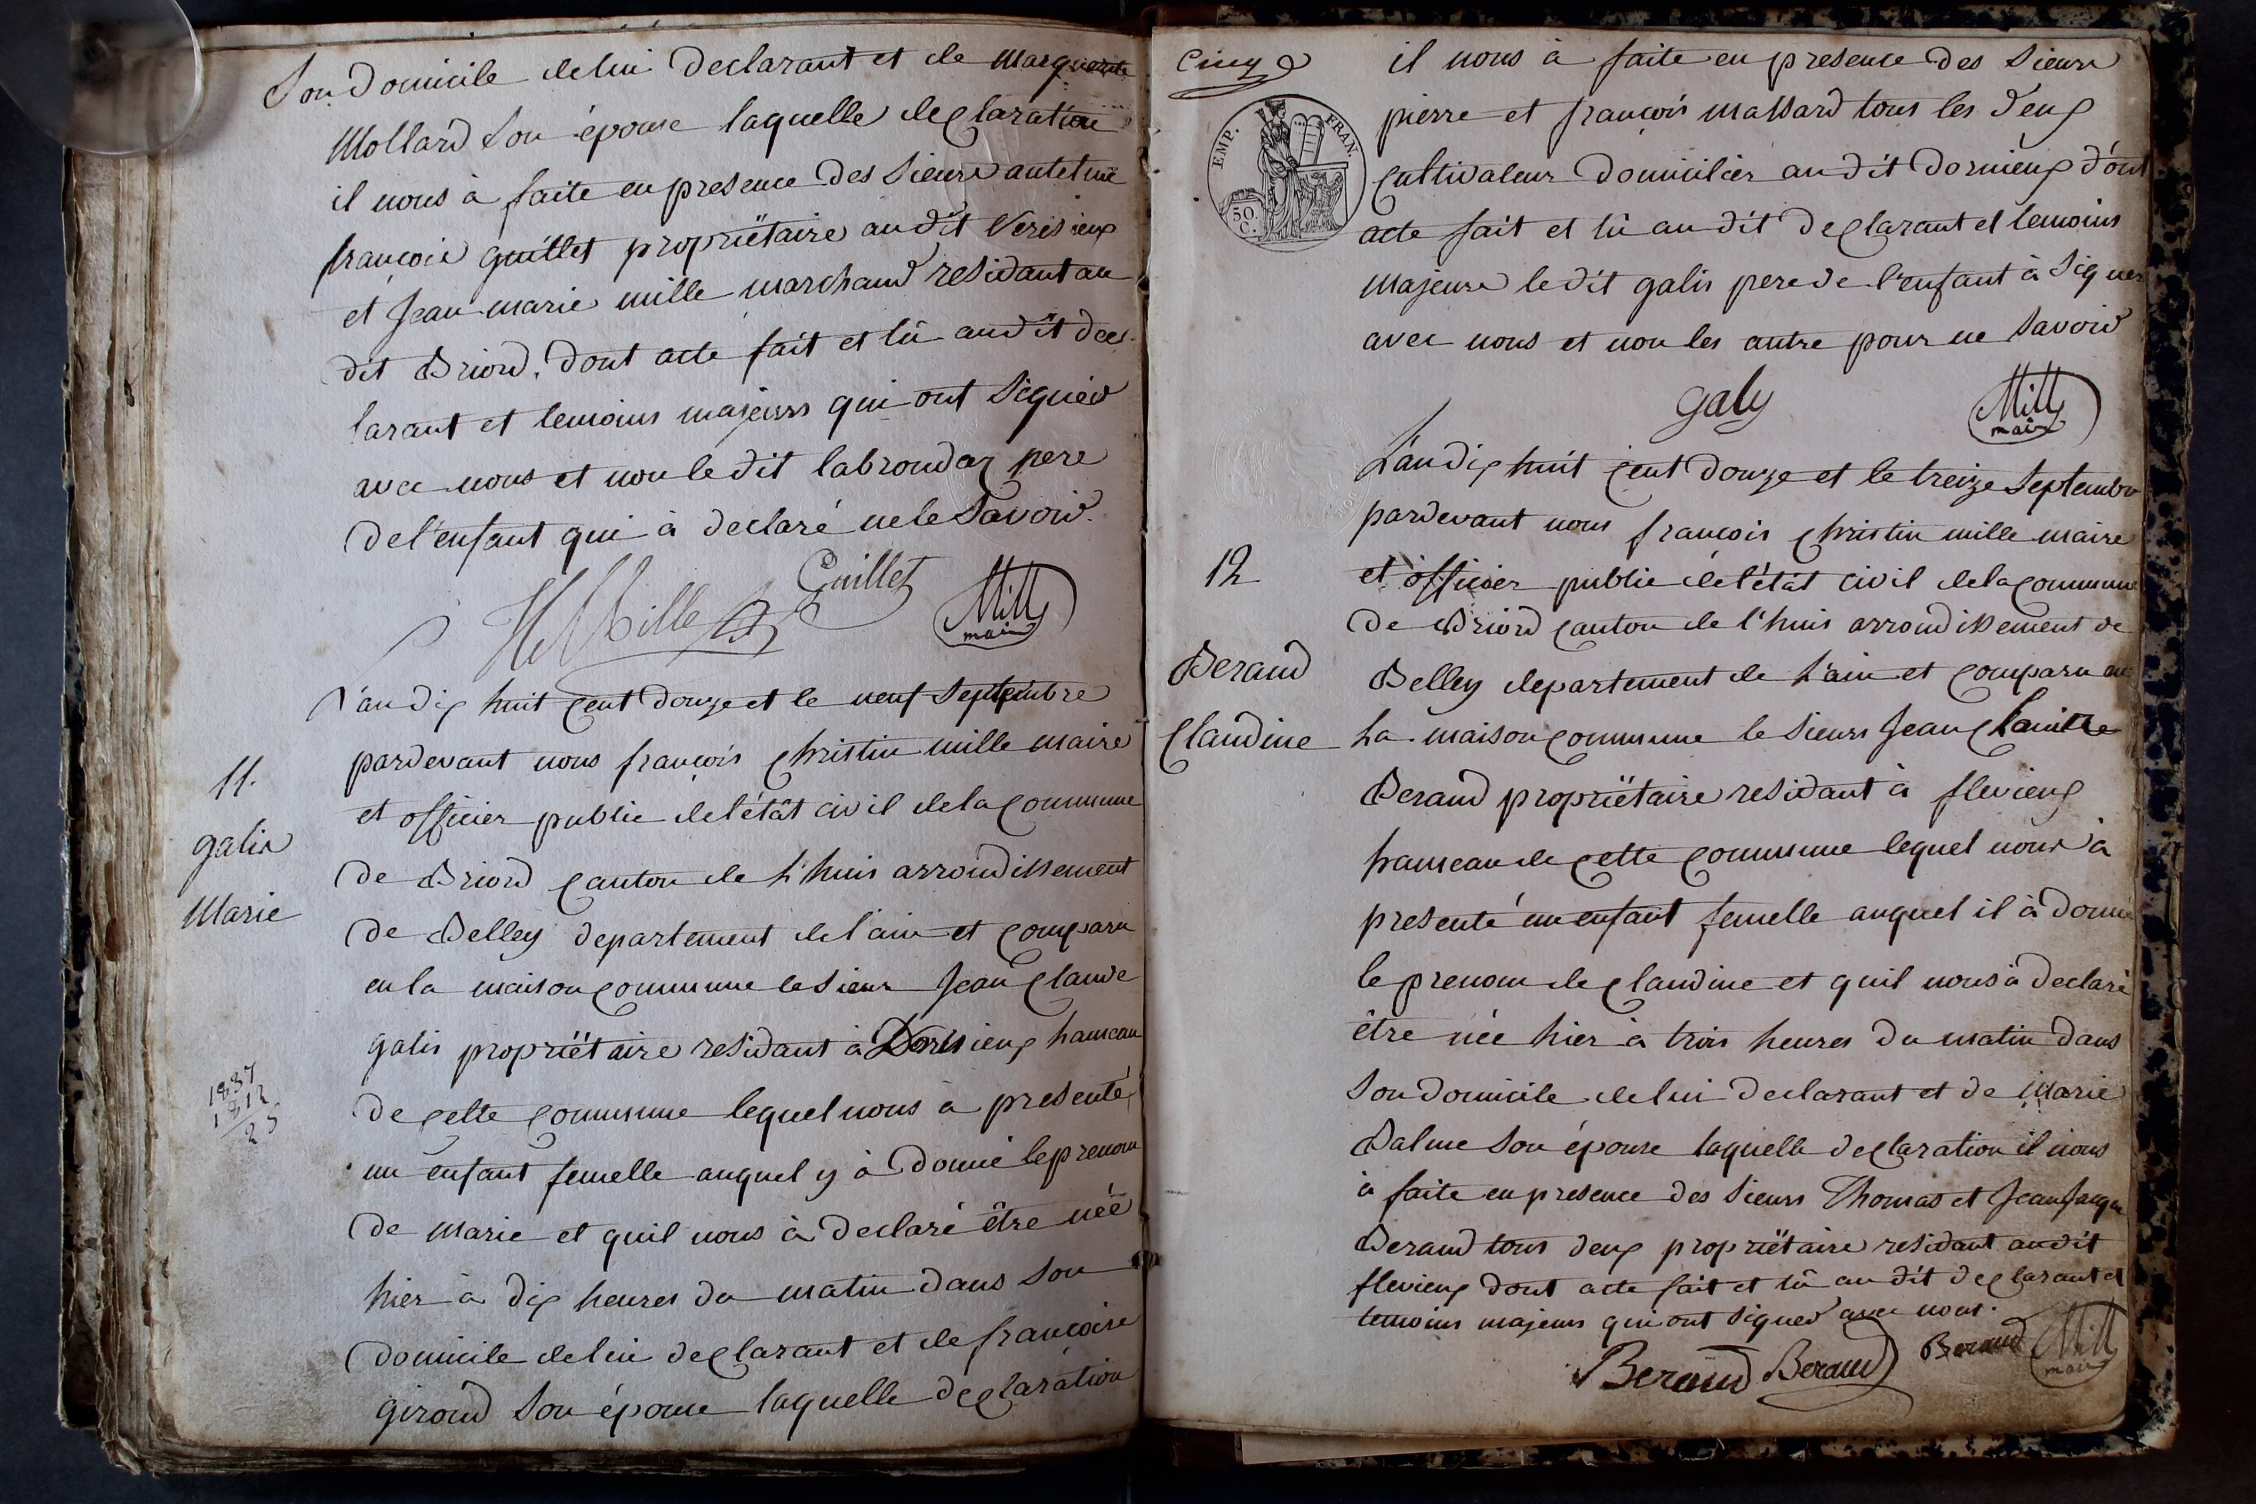 Son Domicile de lui Declarant et de Marguerite
Mollard Son épouse laquelle declaration
il nous à faite en presence Des Sieurs
françois guillet propriëtaire au dit Verisieux
et Jean marie mille marchand residant au
dit Briord, Dont acte fait et lû au dit dec
larant et temoins majeurs qui ont Signés
avec nous et non le dit labronday pere
De l'enfant qui à declaré ne le Savoir.
Mille Guillet Mille
maire
L'an dix huit cent Douze et le neuf Septembre
11.
pardevant nous françois christin mille maire
et officier public de l'étât civil de la commune
galis
De Briord canton de L'huis arrondissement
Marie
De Belley departement de l'ain et comparu
en la maison commune le Sieur Jean Claude
galis propriëtaire residant à Dornieux hameau
1837
1812
25
De cette commune lequel nous a presenté
un enfant femelle auquel y à Donné le prenom
De Marie et quil nous à Declaré être née
hier à dix heures du matin dans Son
Domicile de lui declarant et de françoise
giroud Son épouse laquelle declaration
Cinq
EMP. FRAN.
50.
C.
il nous à faite en presence Des Sieurs
pierre et françois massard tous les Deux
cultivateur Domicilier au dit Dornieux D'ont
acte fait et lû au dit declarant et temoins
majeurs le dit galis pere de l'enfant à Signer
avec nous et non les autre pour ne Savoir
galy Mille
maire
L'an dix huit cent Douze et le treize Septembre
pardevant nous françois christin mille maire
12
et officier public de l'étât civil de la commune
De Briord canton de l'huis arrondissement de
Beraud
Belley departement de L'ain et comparu en
Claudine
La maison commune le Sieurs Jean
Beraud propriëtaire residant à flevieux
hameau de cette commune lequel nous à
presenté un enfant femelle auquel il à donné
le prenom de claudine et quil nous à declaré
être née hier à trois heures Du matin Dans
Son domicile de lui Declarant et de Marie
Balme Son épouse laquelle declaration il nous
à faite en presence des Sieurs Thomas et Jean Jacque
Beraud tous deux propriëtaire residant audit
flevieux dont acte fait et lû au dit declarant et
temoins majeurs qui ont Signés avec nous.
Beraud Beraud Beraud Mille
maire